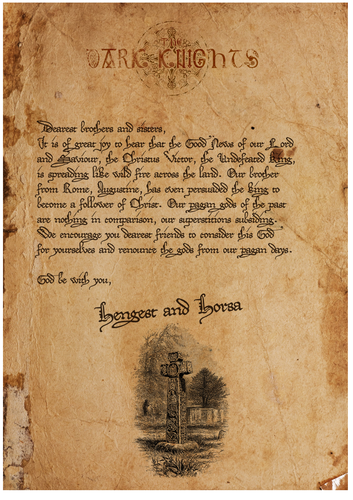 THE
DARK KNIGHTS
Dearest brothers and sisters,
It is of great joy to hear that the Good News of our Lord
and Saviour, the Christus Victor, the Undefeated King,
is spreading like wild fire across the land. Our brother
from Rome, Augustine, has even persuaded the king to
become a follower of Christ. Our pagan gods of the past
are nothing in comparison, our superstitions subsiding.
We encourage you dearest friends to consider this God
for yourselves and renounce the gods from our pagan days.
God be with you,
Hengest and Horsa